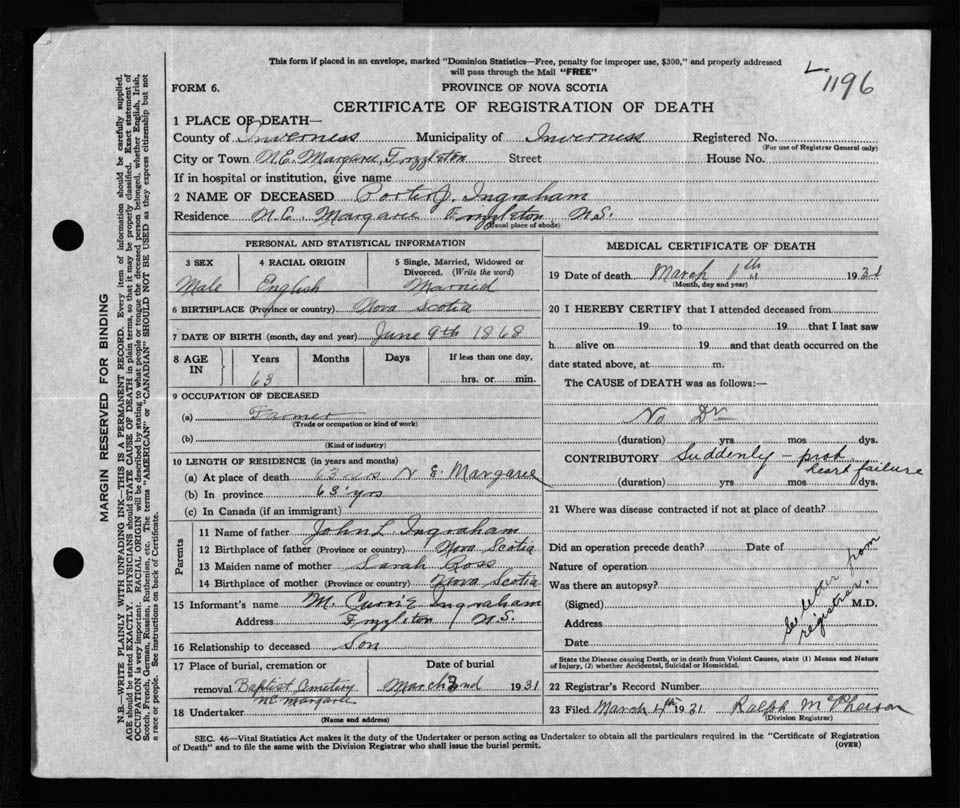 This form if placed in an envelope, marked "Dominion Statistics—Free, penalty for improper use, $300," and properly addressed
will pass through the Mail "FREE"
1196
FORM 6.
PROVINCE OF NOVA SCOTIA
CERTIFICATE OF REGISTRATION OF DEATH
1 PLACE OF DEATH—
County of Inverness Municipality of Inverness Registered No.
(For use of Registrar General only)
City or Town N.E. Margaree, Frizzleton Street House No.
If in hospital or institution, give name
2 NAME OF DECEASED Porter J. Ingraham
Residence N.E. Margaree Frizzleton N.S.
(Usual place of abode)
PERSONAL AND STATISTICAL INFORMATION
3 SEX 4 RACIAL ORIGIN 5 Single, Married, Widowed or Divorced. (Write the word)
Male English Married
6 BIRTHPLACE (Province or country) Nova Scotia
7 DATE OF BIRTH (month, day and year) June 9th 1868
8 AGE IN Years Months Days If less than one day,
63 hrs. or min.
9 OCCUPATION OF DECEASED
(a) Farmer
(Trade or occupation or kind of work)
(b)
(Kind of industry)
10 LENGTH OF RESIDENCE (in years and months)
(a) At place of death 63 yrs N E. Margaree
(b) In province 63 yrs
(c) In Canada (if an immigrant)
Parents
11 Name of father John L Ingraham
12 Birthplace of father (Province or country) Nova Scotia
13 Maiden name of mother Sarah Ross
14 Birthplace of mother (Province or country) Nova Scotia
15 Informant's name M. Currie Ingraham
Address Frizzleton N.S.
16 Relationship to deceased Son
17 Place of burial, cremation or Date of burial
removal Baptist Cemetery March 3nd 1931
NE Margaree
18 Undertaker
(Name and address)
MEDICAL CERTIFICATE OF DEATH
19 Date of death March 1th 1931
(Month, day and year)
20 I HEREBY CERTIFY that I attended deceased from
19 to 19 that I last saw
h alive on 19 and that death occurred on the
date stated above, at m.
The CAUSE of DEATH was as follows:—
No Dr
(duration) yrs mos dys.
CONTRIBUTORY Suddenly - prob
heart failure
(duration) yrs mos dys.
21 Where was disease contracted if not at place of death?
Did an operation precede death? Date of
Nature of operation
Was there an autopsy?
(Signed) M.D.
Address
Date
See letter from
registrar.
State the Disease causing Death, or in death from Violent Causes, state (1) Means and Nature
of Injury, (2) whether Accidental, Suicidal or Homicidal.
22 Registrar's Record Number
23 Filed March 4th 1931 Ralph McPherson
(Division Registrar)
SEC. 46—Vital Statistics Act makes it the duty of the Undertaker or person acting as Undertaker to obtain all the particulars required in the "Certificate of Registration
of Death" and to file the same with the Division Registrar who shall issue the burial permit. (OVER)
MARGIN RESERVED FOR BINDING
N.B.—WRITE PLAINLY WITH UNFADING INK—THIS IS A PERMANENT RECORD. Every item of information should be carefully supplied.
AGE should be stated EXACTLY. PHYSICIANS should STATE CAUSE OF DEATH in plain terms, so that it may be properly classified. Exact statement of
OCCUPATION is very important. RACIAL ORIGIN will be described by stating to what people or tongue the deceased person belonged, whether English, Irish,
Scotch, French, German, Russian, Ruthenian, etc. The terms "AMERICAN" or "CANADIAN" SHOULD NOT BE USED as they express citizenship but not
a race or people. See instructions on back of Certificate.